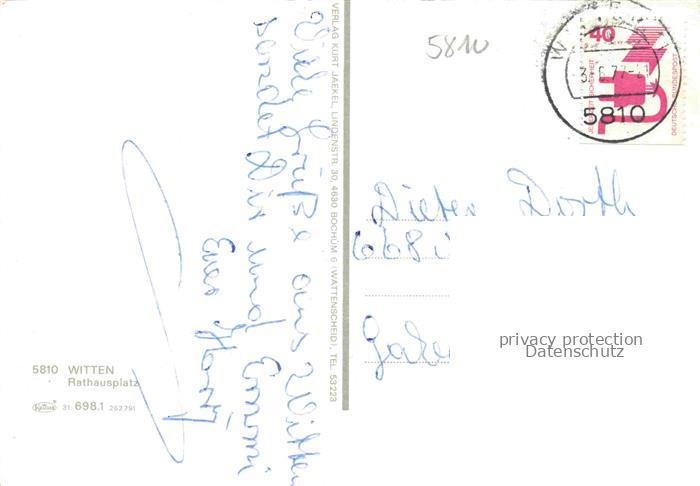 Viele Grüße aus Witten
sendet Dir und Emmi
Euer
VERLAG KURT JAEKEL, LINDENSTR. 30, 4630 BOCHUM 6 (WATTENSCHEID), TEL. 53223
5810
40
DEUTSCHE BUNDESPOST
5810
Dieter Dorth
668
privacy protection
Datenschutz
5810 WITTEN
Rathausplatz
31. 698.1 262791